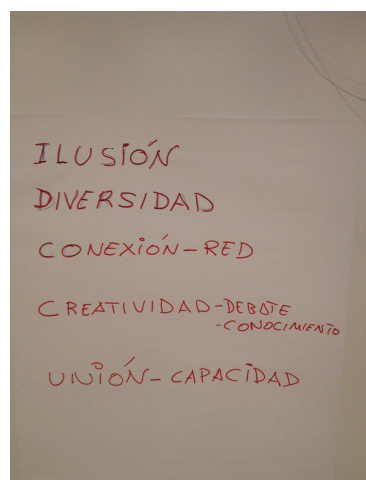 ILUSIÓN
DIVERSIDAD
CONEXIÓN - RED
CREATIVIDAD - DEBATE
- CONOCIMIENTO
UNIÓN - CAPACIDAD